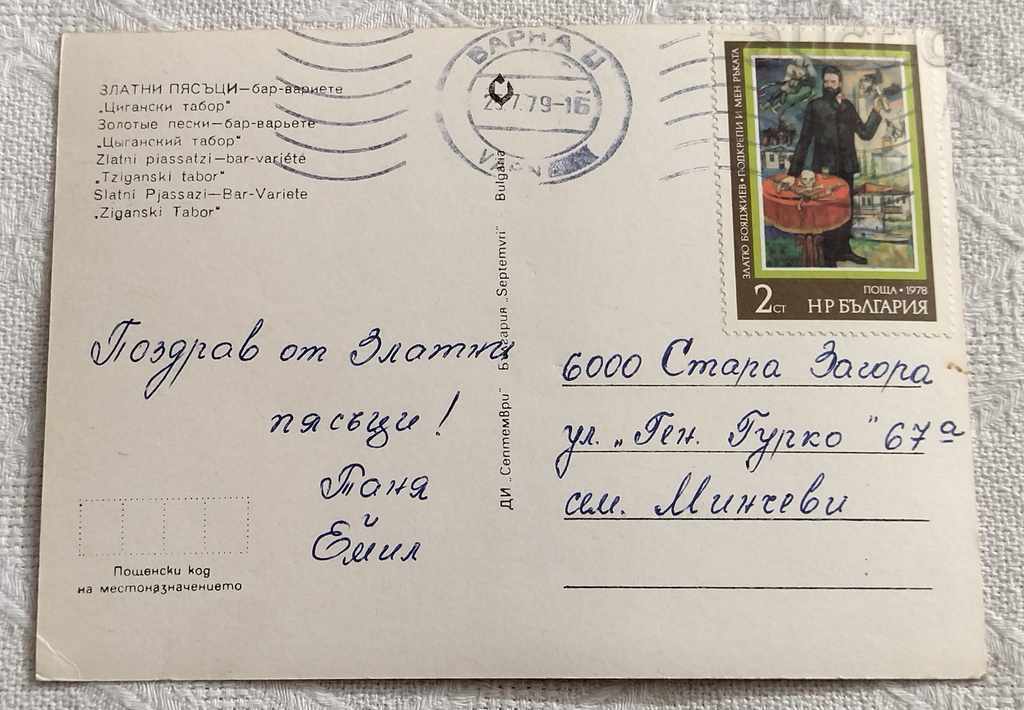 ЗЛАТНИ ПЯСЪЦИ—бар-вариете
„Цигански табор"
Золотые пески—бар-варьете
„Цыганский табор"
Zlatni piassatzi—bar-variété
„Tziganski tabor"
Slatni Pjassazi—Bar-Variete
„Ziganski Tabor"
Поздрав от Златни
пясъци!
Таня
Емил
Пощенски код
на местоназначението
ДИ „Септември" България „Septemvri" Bulgaria
ВАРНА Ц
7.79-16
ЗЛАТЮ БОЯДЖИЕВ • ПОДКРЕПИ И МЕН РЪКАТА
ПОЩА • 1978
2 СТ НР БЪЛГАРИЯ
6000 Стара Загора
ул. „Ген. Гурко" 67а
сем. Минчеви